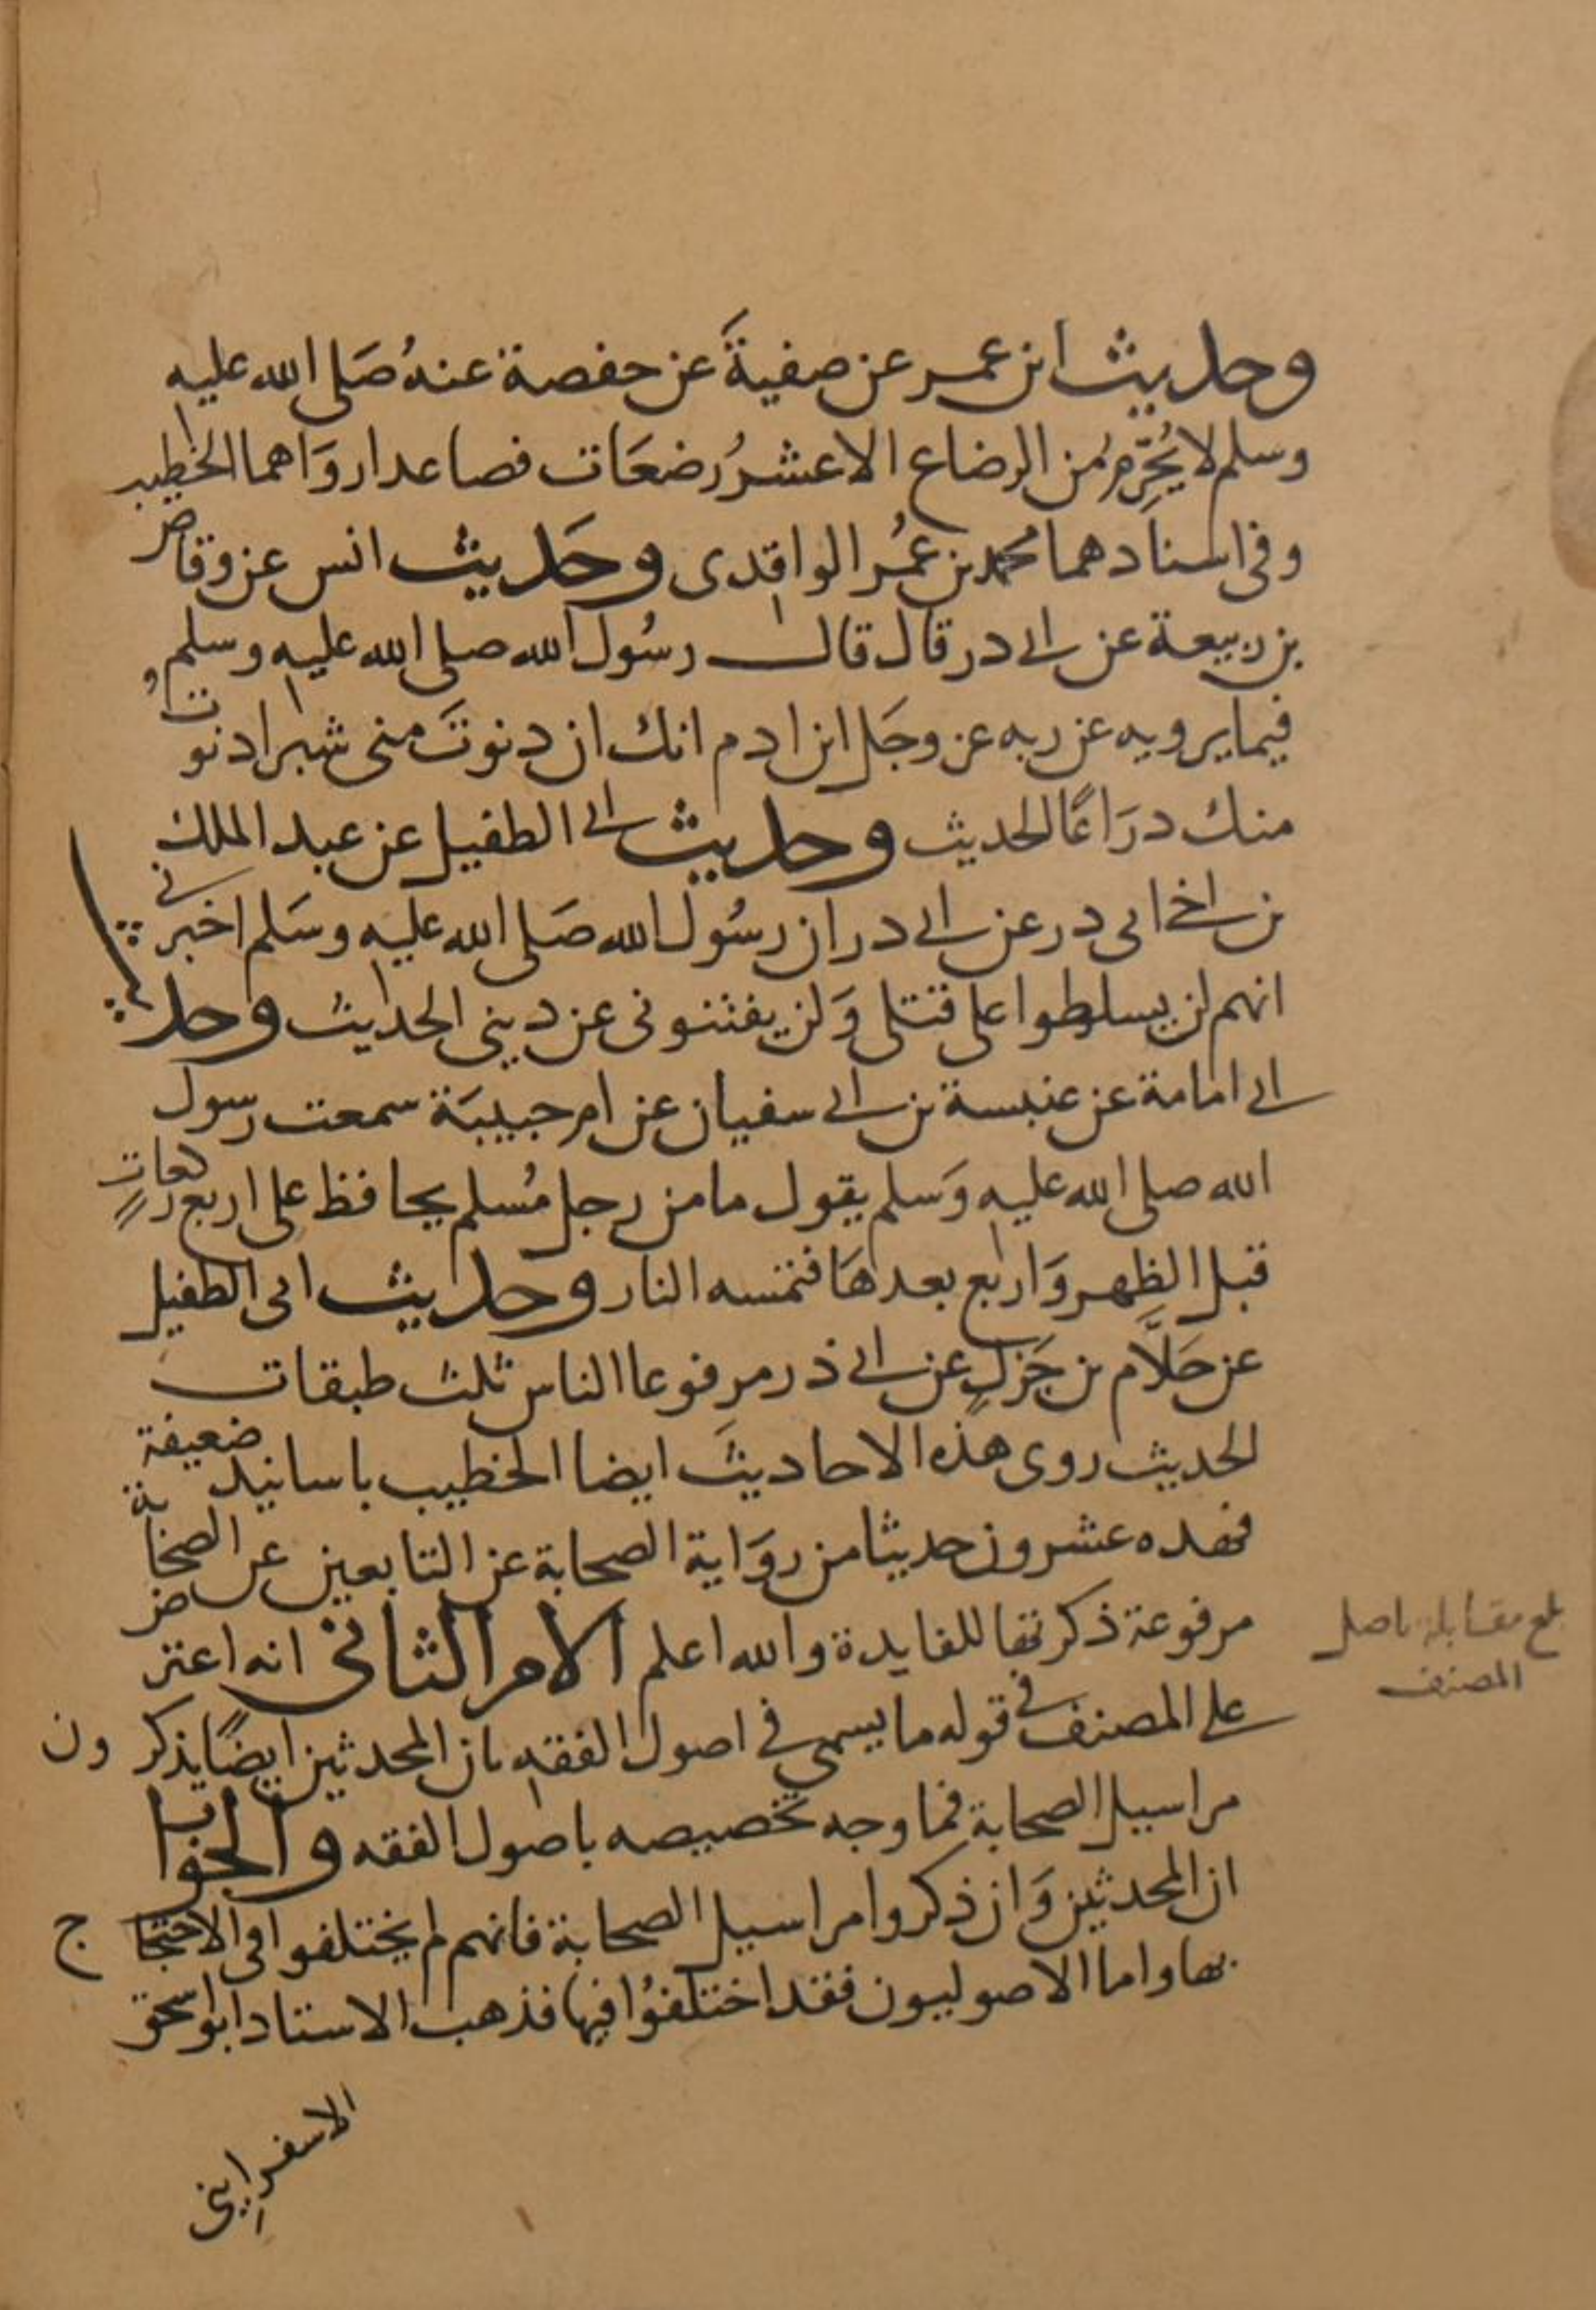 وحديث ابن عمر عن صفيةَ عن حفصة عنهُ صَلى الله عليه
وسلم لا يُحَرِّمُ من الرضاع الا عشرُ رضعَات فصاعدا روَاهما الخطيب
وفى اسنادهما محمد بن عُمر الواقدى وحَديث انس عن وقاص
بن ربيعة عن ابى در قال قال رسُول الله صلى الله عليه وسلم
فيما يرويه عن ربه عز وجَل ابن ادم انك ان دنوتَ منى شبرا دنوت
منك درَاعًا الحديث وحديث ابى الطفيل عن عبد الملك
بن اخى ابى در عن ابى در ان رسُول الله صَلى الله عليه وسَلم اخبرنى
انهم لن يسلطوا على قتلى وَلن يفتنونى عن دينى الحديث وحديث
ابى امامة عن عنبسة بن ابى سفيان عن ام حبيبَة سمعت رسول
الله صلى الله عليه وَسلم يقول ما من رجل مُسلم يحافظ على اربع ركعاتٍ
قبل الظهر وَاربع بعدهَا فتمسه النار وحديث ابى الطفيل
عن حَلَّام بن جَزلٍ عن ابى ذر مرفوعا الناس ثلث طبقات
الحديث روى هذه الاحاديثَ ايضا الخطيب باسانيد ضعيفة
فهده عشرون حديثا من روَاية الصحابة عن التابعين عن الصحابة
مرفوعة ذكرتها للفايدة والله اعلم الامر الثانى انه اعترض
على المصنف فى قوله ما يسمى فى اصول الفقه بان المحدثين ايضًا يذكرون
مراسيل الصحابة فما وجه تخصيصه باصول الفقه والجواب
ان المحدثين وَان ذكروا مراسيل الصحابة فانهم لم يختلفوا فى الاحتجاج
بها واما الاصوليون فقد اختلفُوا فيها فذهب الاستاد ابو اسحق
الاسفراينى
بلغ مقابلة باصل
المصنف